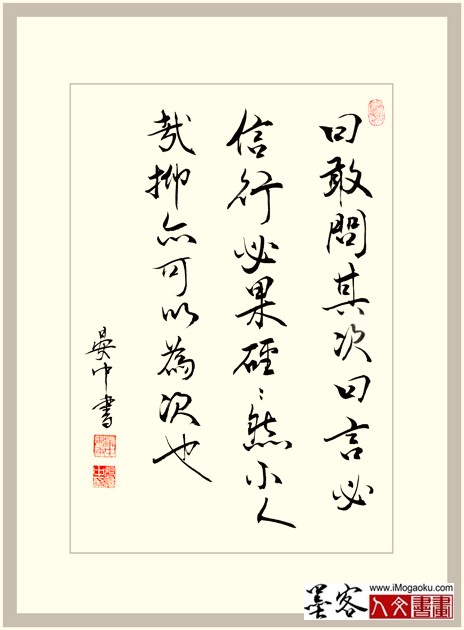 曰敢問其次曰言必
信行必果硜〻然小人
哉抑亦可以為次也
晏中書
墨客
www.iMogaoku.com
人文書畫